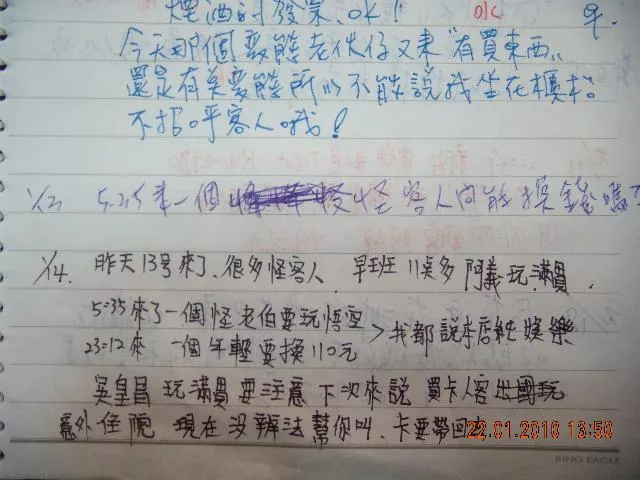 煙酒 發票、OK! OK
今天那個變態老伙仔又來"有買東西"
還是有夠變態所以不能說我坐在櫃檯
不招呼客人哦!
1/13 5:25來一個怪客人問能換錢嗎?
1/14. 昨天13號來了、很多怪客人、早班11点多 阿義玩滿貫.
5:35來了一個怪老伯要玩悟空
>我都說本店純娛樂
23:12來 一個年輕要換110元
吳皇昌 玩滿貫要注意 下次來說 買卡人客出國玩
意外住院 現在沒辦法幫你叫.卡要帶回去
22.01.2010 13:50
KING EAGLE